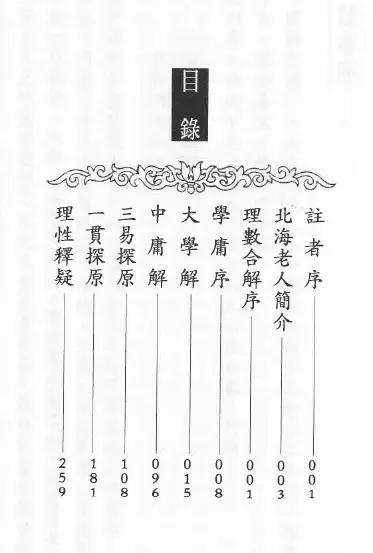 目錄
註者序 001
北海老人簡介 003
理數合解序 001
學庸序 008
大學解 015
中庸解 096
三易探原 108
一貫探原 181
理性釋疑 259